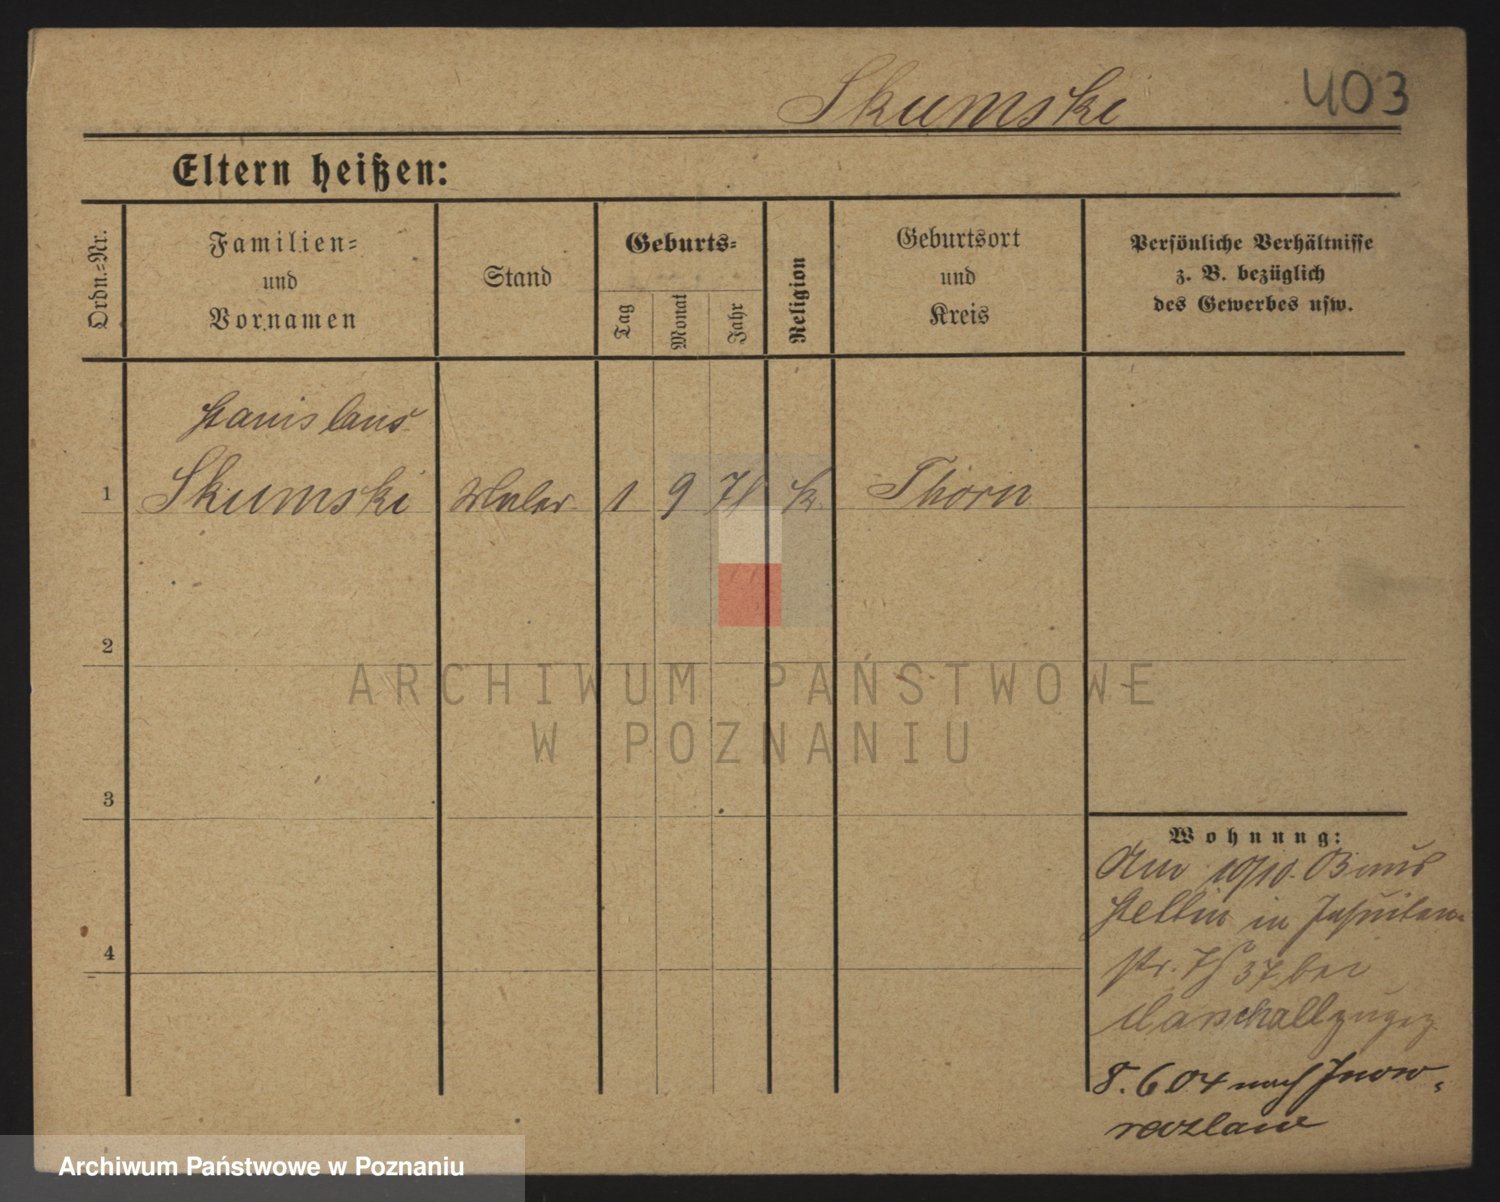 Skumski 403
Eltern heißen:
Ordn.=Nr.
Familien=
und
Vornamen
Stand
Geburts=
Tag
Monat
Jahr
Religion
Geburtsort
und
Kreis
Persönliche Verhältnisse
z. B. bezüglich
des Gewerbes usw.
Stanislaus
1 Skumski Maler 1 9 78 k. Thorn
2
3
4
Wohnung:
Am 10/10. 03 aus
Stettin in Jesuiten
str. 37 bei
Maschall zugez
8.6 04 nach Inow-
razlaw
ARCHIWUM PAŃSTWOWE
W POZNANIU
Archiwum Państwowe w Poznaniu